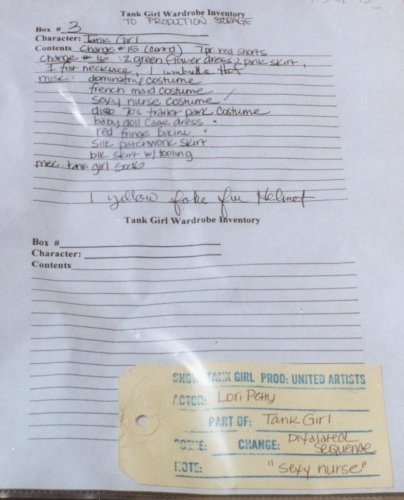 Tank Girl Wardrobe Inventory
TO PRODUCTION STORAGE
Box # 3
Character: Tank Girl
Contents Change #15 (cont'd) 7pr red shorts
change #16 : 2 green flower dress / pink skirt,
1 fist necklace, 1 umbrella Hat
misc: dominatrix costume
french maid costume
sexy nurse costume
disco 70s trailer park costume
baby doll cage dress
red fringe bikini
silk patchwork skirt
blk skirt w/ tooling
misc tank girl socks
1 yellow fake fur Helmet
Tank Girl Wardrobe Inventory
Box #
Character:
Contents
SHOW: TANK GIRL PROD: UNITED ARTISTS
ACTOR: Lori Petty
PART OF: Tank Girl
SCENE: CHANGE: sequence
NOTE: "sexy nurse"